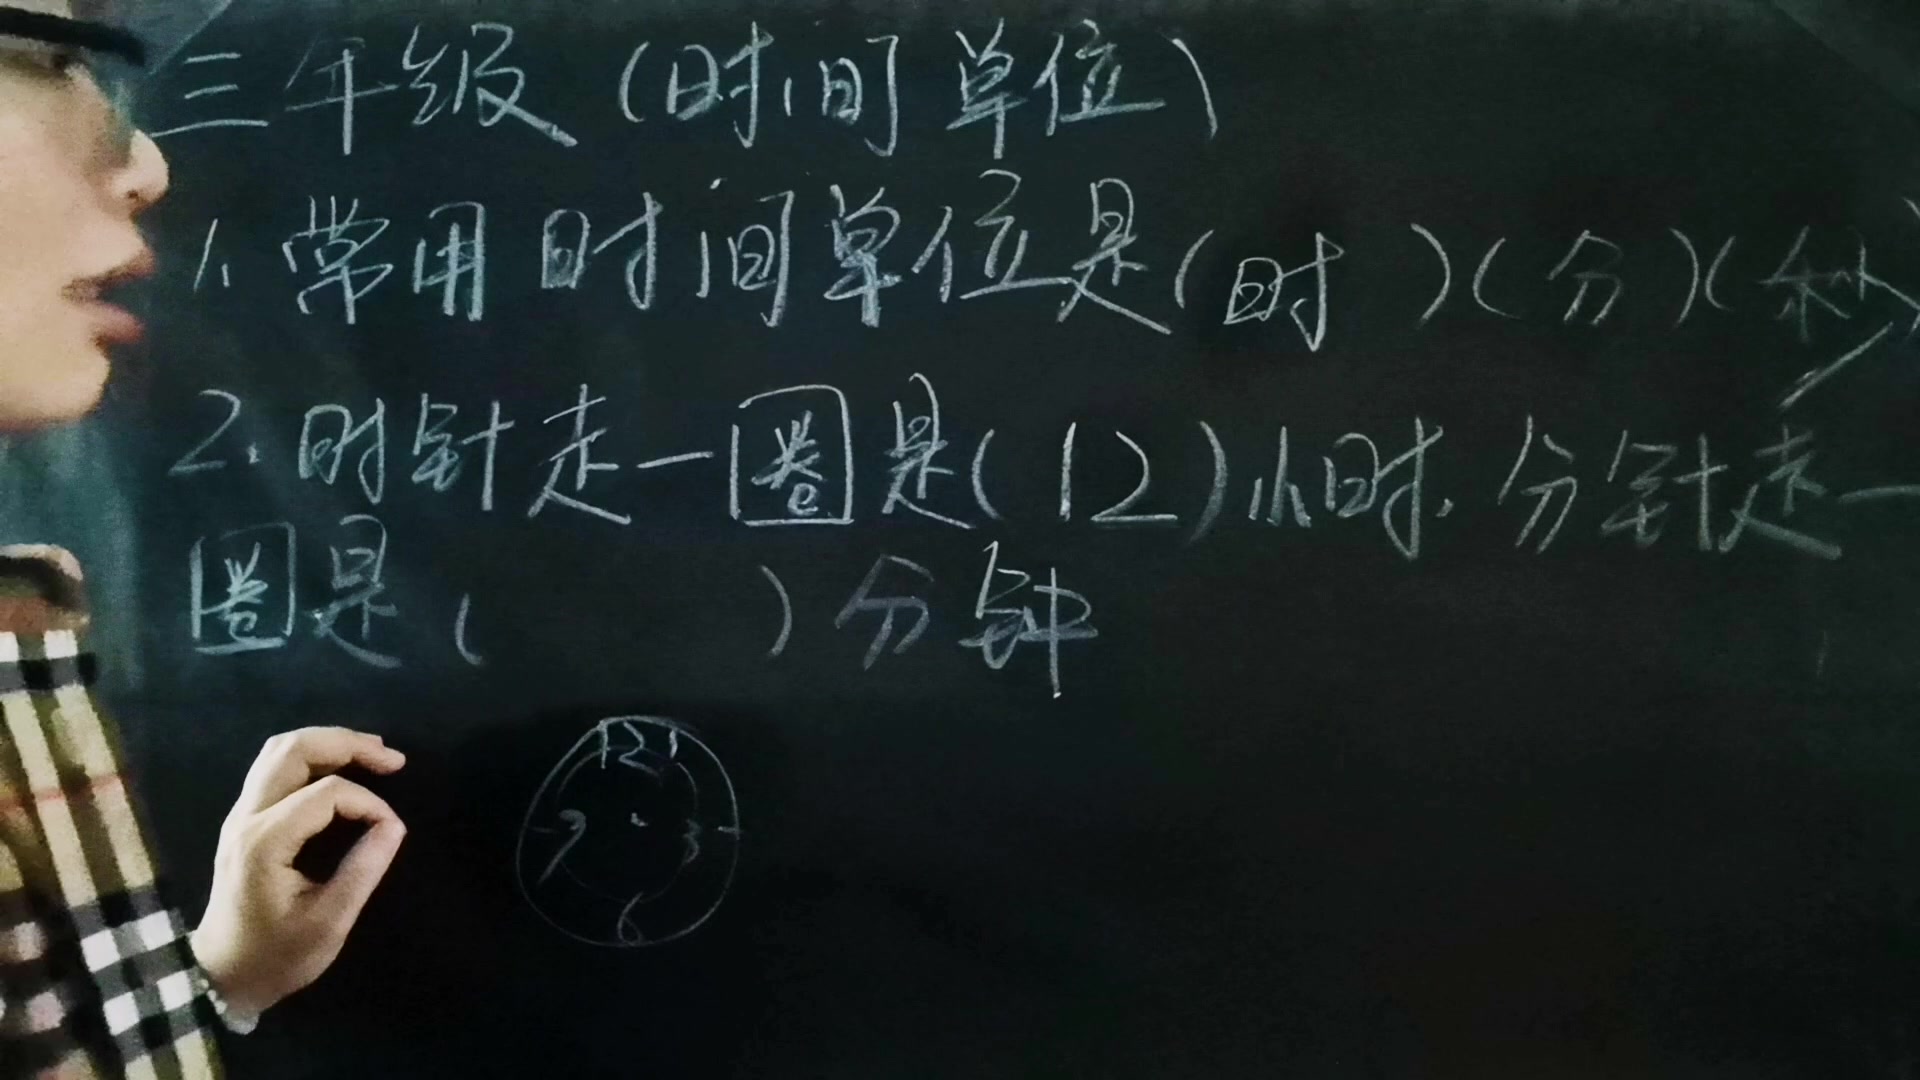 三年级（时间单位）
1. 常用时间单位是（时 ）（分）（秒）
2. 时针走一圈是（12）小时. 分针走一
圈是（ ）分钟
12 1
9 3
6